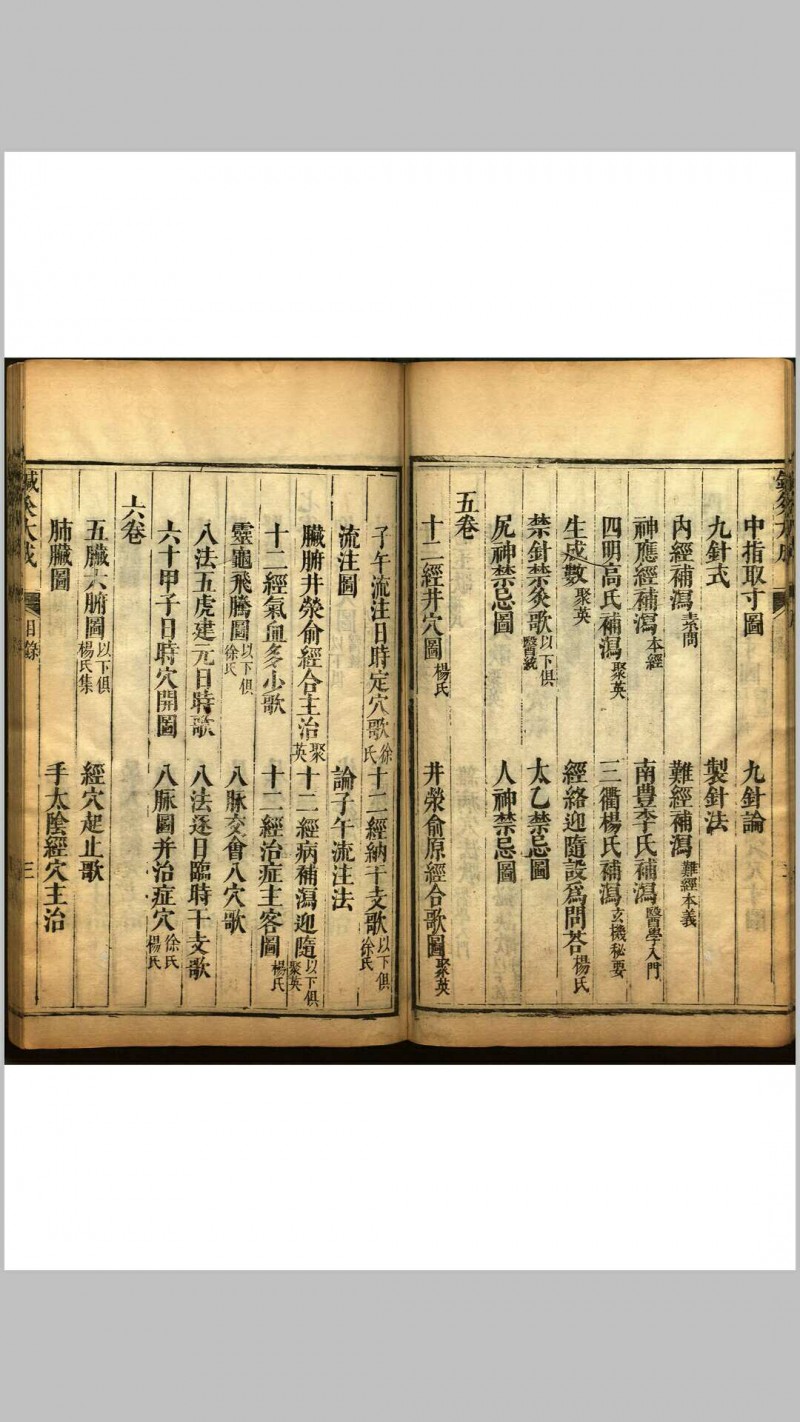 中指取寸圖 九針論
九針式 製針法
內經補瀉 素問 難經補瀉 難經本義
神應經補瀉 本經 南豊李氏補瀉 醫學入門
四明高氏補瀉 聚英 三衢楊氏補瀉 玄機秘要
生成數 聚英 經絡迎隨設爲問荅 楊氏
禁針禁灸歌 以下俱醫統 太乙禁忌圖
尻神禁忌圖 人神禁忌圖
五卷
十二經井穴圖 楊氏 井滎俞原經合歌圖 聚英
子午流注日時定穴歌 徐氏 十二經納干支歌 以下俱徐氏
流注圖 論子午流注法
臟腑井滎俞經合主治 聚英 十二經病補瀉迎隨 以下俱聚英
十二經氣血多少歌 十二經治症主客圖 楊氏
靈龜飛騰圖 以下俱徐氏 八脉交會八穴歌
八法五虎建元日時歌 八法逐日臨時干支歌
六十甲子日時穴開圖 八脉圖并治症穴 徐氏楊氏
六卷
五臟六腑圖 以下俱楊氏集 經穴起止歌
肺臟圖 手太陰經穴主治
鍼灸大成 目錄 三